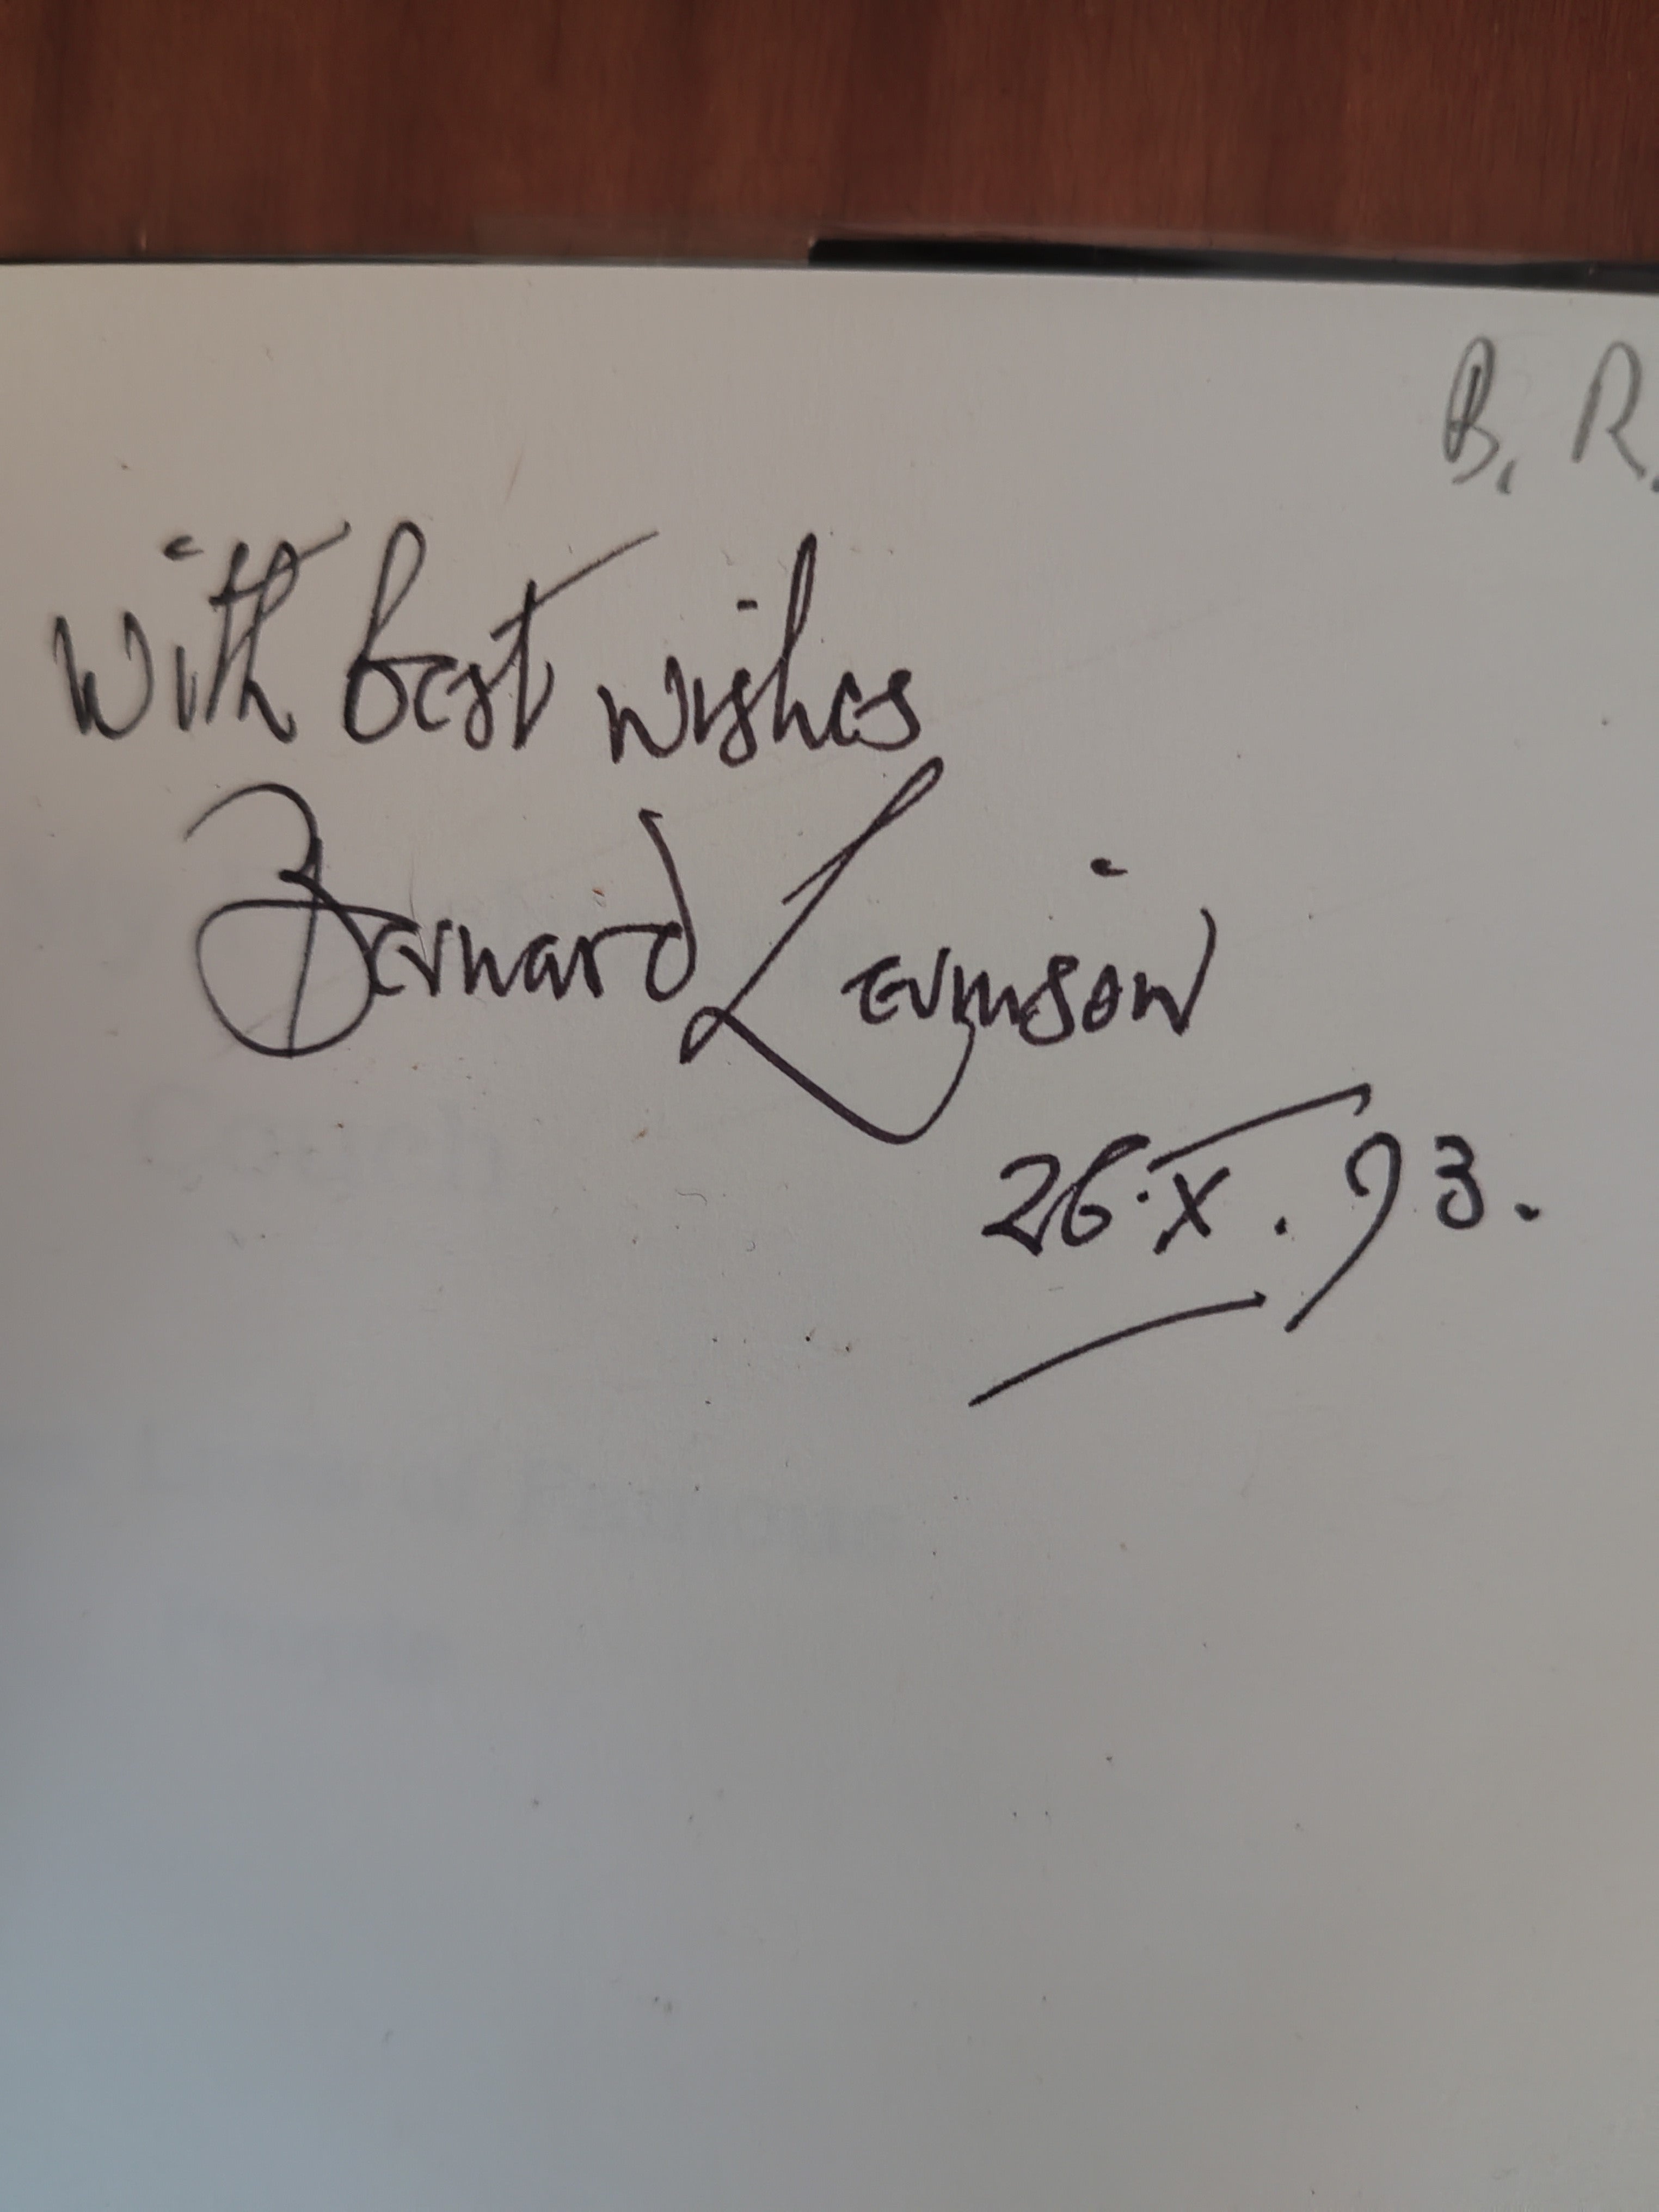 B. R.
With best wishes
Bernard Levinson
26.X.93.